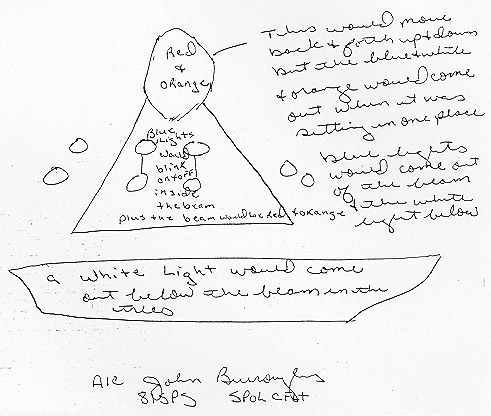 Red
&
orange
This would move
back & forth up & down
but the blue & white
& orange would come
out when it was
sitting in one place
Blue
Lights
would
blink
on & off
inside
the beam
plus the beam would be red & orange
blue lights
would come out
of the beam
& the white
light below
a white light would come
out below the beam in the
trees
A1C John Burroughs
81SPS